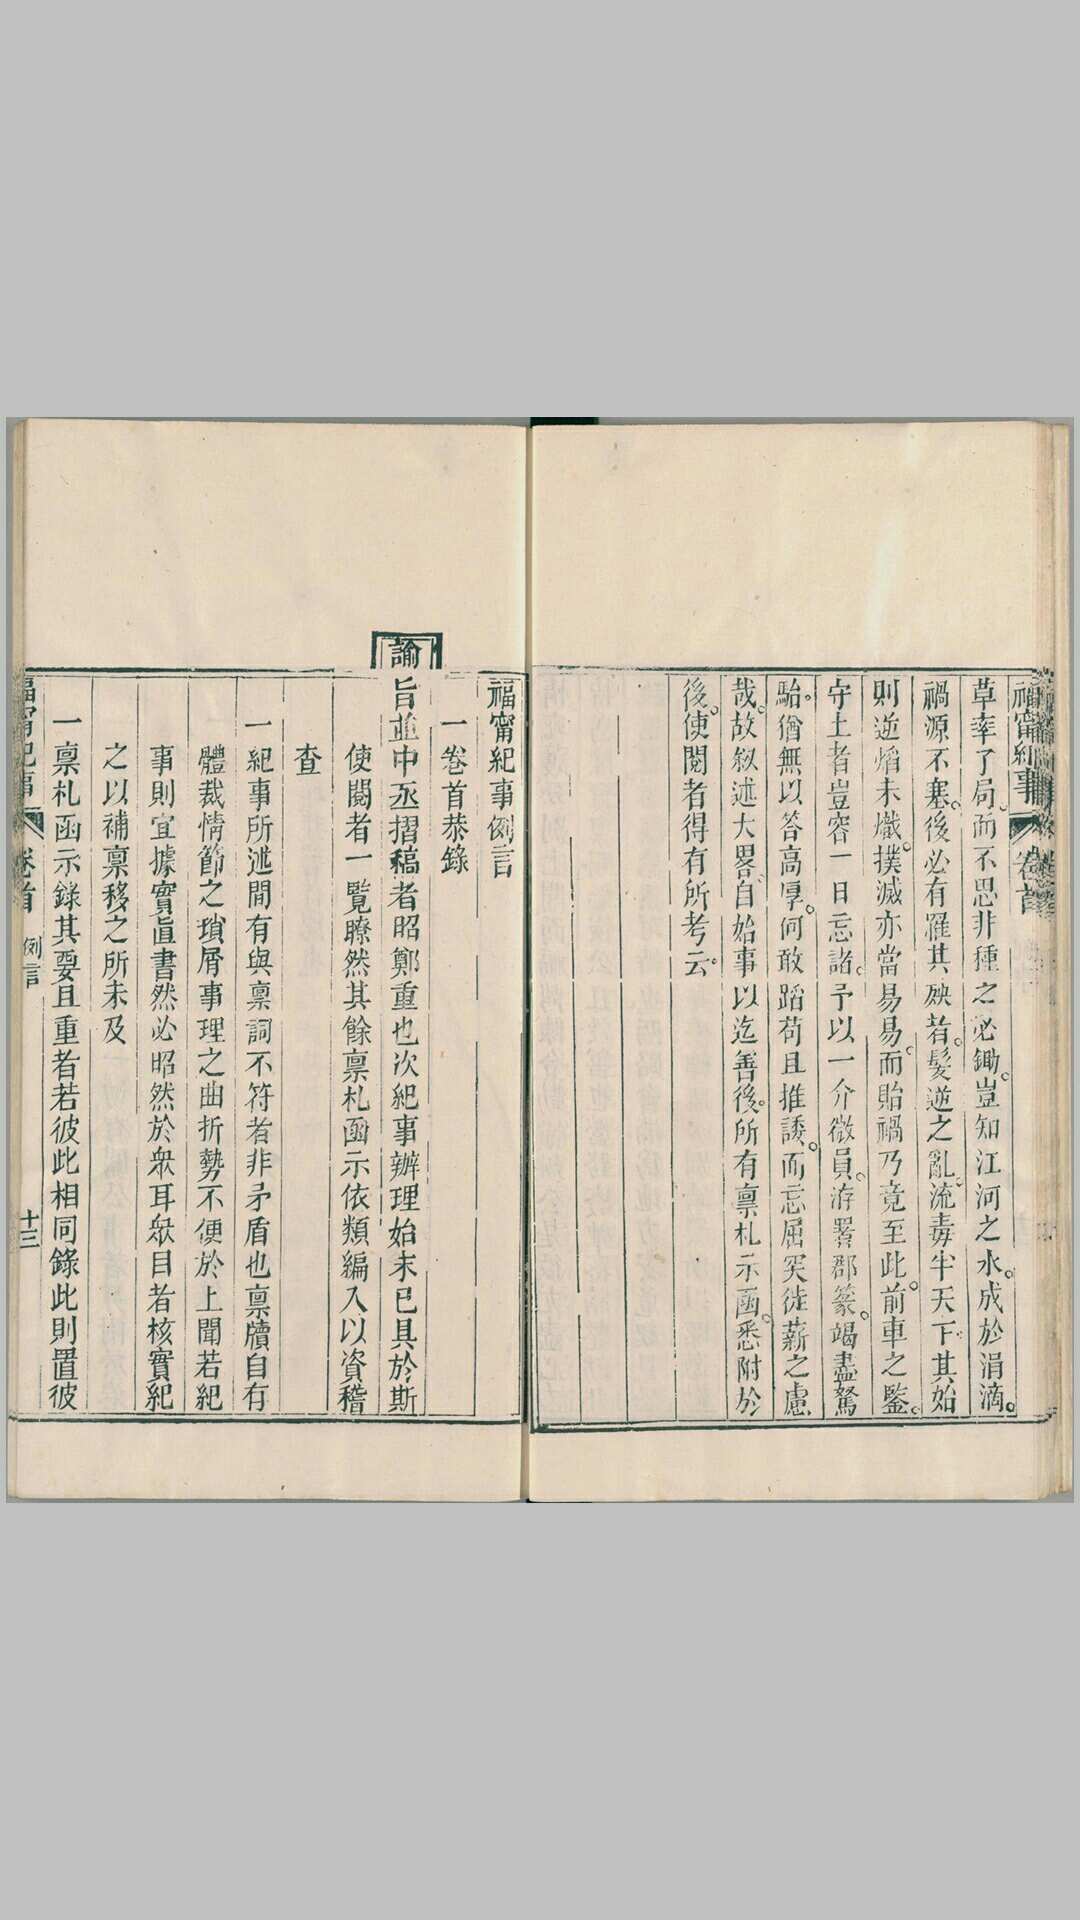 福甯紀事 卷首
草率了局而不思非種之必鋤豈知江河之水成於涓滴
禍源不塞後必有罹其殃者髮逆之亂流毒半天下其始
則逆焰未熾撲滅亦當易易而貽禍乃竟至此前車之鑒
守土者豈容一日忘諸予以一介微員浮署郡篆竭盡駑
駘猶無以答高厚何敢蹈苟且推諉而忘屈突徙薪之慮
哉故叙述大畧自始事以迄善後所有稟札示函悉附於
後使閱者得有所考云
福甯紀事例言
一卷首恭錄
諭旨並中丞摺稿者昭鄭重也次紀事辦理始末已具於斯
使閱者一覽瞭然其餘稟札函示依類編入以資稽
查
一紀事所述間有與稟詞不符者非矛盾也稟牘自有
體裁情節之瑣屑事理之曲折勢不便於上聞若紀
事則宜據實直書然必昭然於衆耳衆目者核實紀
之以補稟移之所未及
一稟札函示錄其要且重者若彼此相同錄此則置彼
福甯紀事 卷首 例言 十三